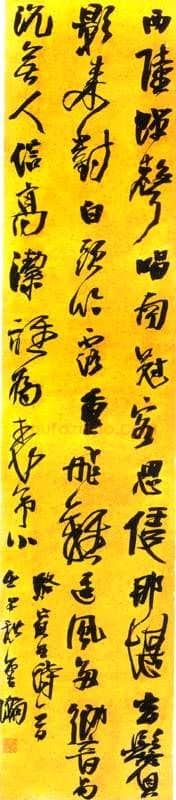 西陸蟬聲唱南冠客思侵那堪玄鬢
影來對白頭吟露重飛難進風多響易
沉無人信高潔誰為表予心
駱賓王詩一首
壬午秋